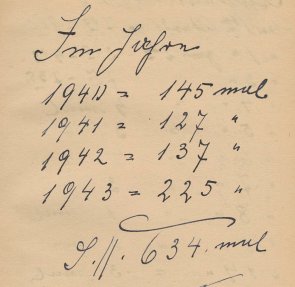 Im Jahre
1940 = 145 mal
1941 = 127 "
1942 = 137 "
1943 = 225 "
S.//. 634. mal